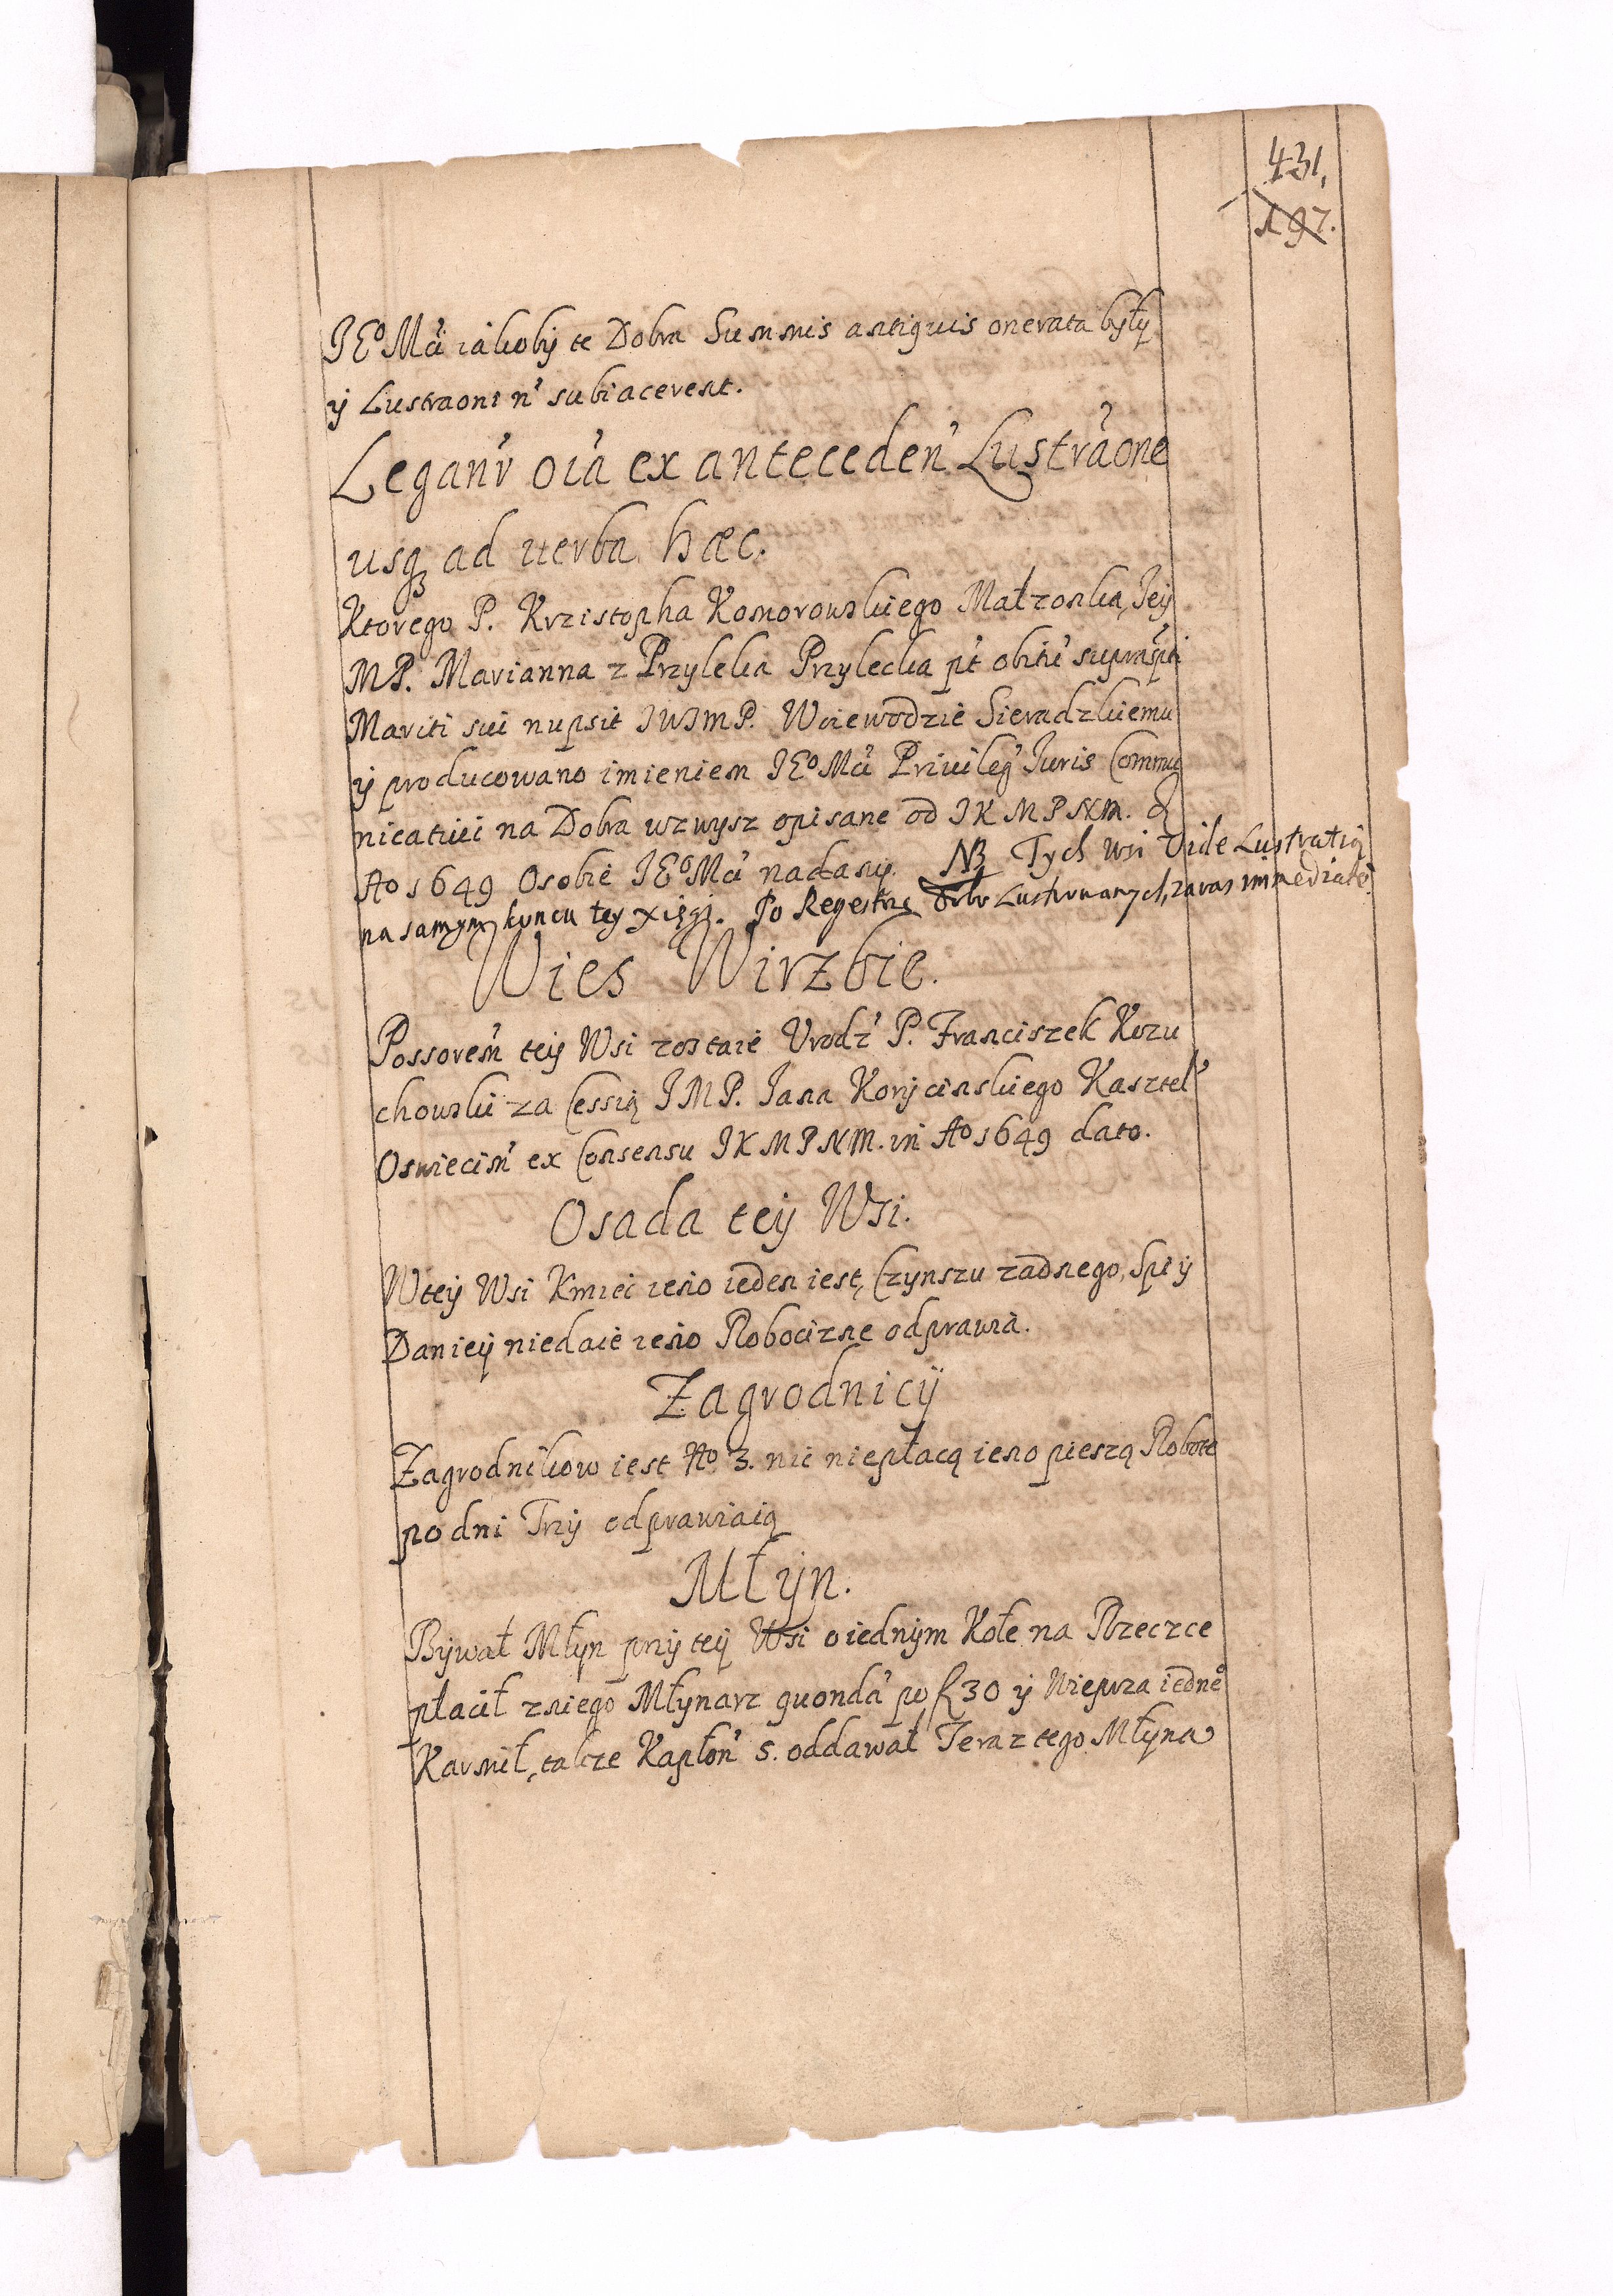 431,
197.
JEº Mći iakoby te Dobra Summis antiquis onerata były
ÿ Lustraoni n' subiacerent.
Legan'r oia' ex anteceden' Lustra'one
usq3 ad uerba hæc.
Ktorego P. Krzistopha Komorowskiego Małzonka, Jeÿ
MP. Marianna z Przyleka Przylecka pt' obitu' supraspti
Mariti sui nupsit JWJMP. Woiewodzie Sieradzkiemu
ÿ producowano imieniem JEº Mći Priuileg' Iuris Commu
nicatiui na Dobra wzwysz opisane od JKMPNM. &
Aº 1649 Osobie JEº Mći nadany. NB Tych wsi Vide Lustratią
na samym koncu tey xięgi. Po Regestrze Dobr Lustrowanych, zaraz immediatè.
Wies Wirzbie.
Possorem' teÿ Wsi zostaie Vrodz' P. Franciszek Kozu
chowski za Cessią JMP. Jana Korÿcinskiego Kasztel'
Oswiecim' ex Consensu JKMPNM. in Aº 1649 dato.
Osada teÿ Wsi.
W teÿ Wsi Kmieć ieno ieden iest, Czynszu zadnego, Spi ÿ
Danieÿ niedaie ieno Robociznę odprawia.
Zagrodnicÿ
Zagrodnikow iest Nº 3. nic niepłacą ieno pieszą Robotę
po dni Trzÿ odprawiaią
Młÿn.
Bÿwał Młÿn przÿ teÿ Wsi o iednÿm Kole na Rzeczce
płacił zniego Młÿnarz quonda' po f 30 ÿ Wieprza iedneº
Karmił, takze Kapłon' 5. oddawał Teraz tego Młÿna